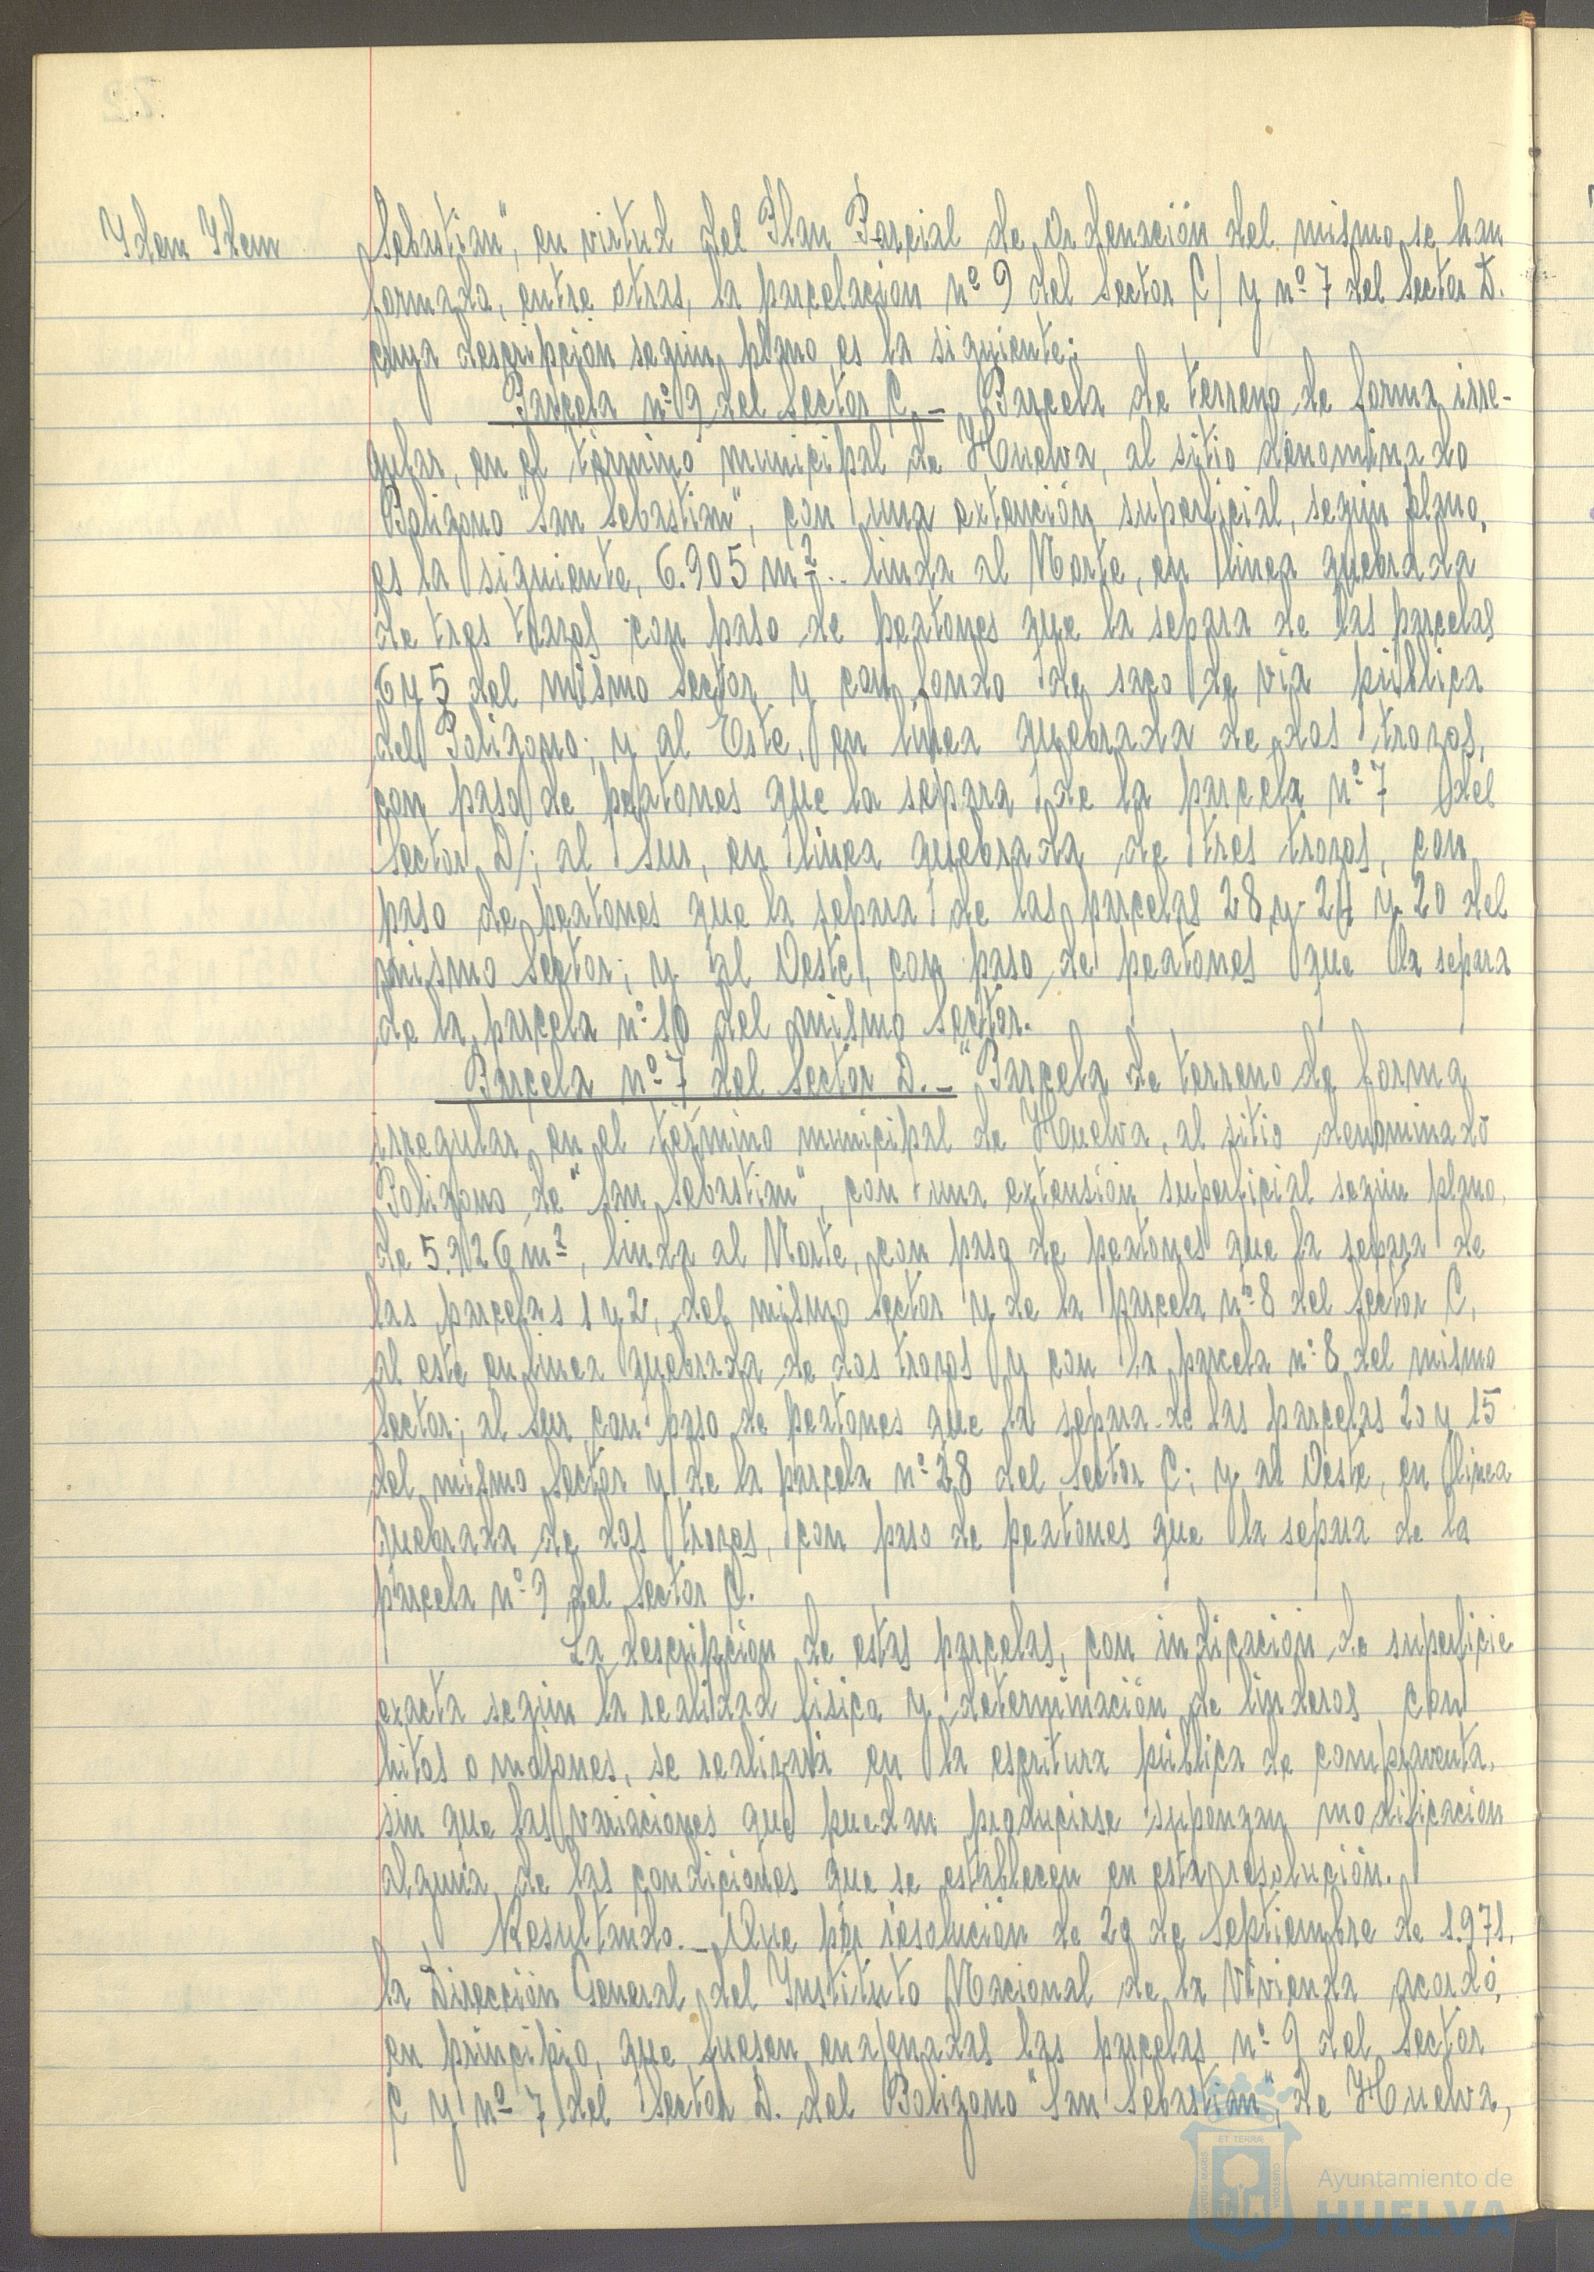 Idem Idem
Sebastian", en virtud del Plan Parcial de Ordenación del mismo se han
formada, entre otras, la parcelación nº 9 del Sector C/ y nº 7 del Sector D.
cuya descripción según plano es la siguiente:
Parcela nº 9 del Sector C.- Parcela de terreno de forma irre-
gular, en el término municipal de Huelva, al sitio denominado
Poligono "San Sebastian", con una extención superficial, según plano,
es la siguiente, 6.905 m².. linda al Norte, en linea quebrada
de tres trazos con paso de peatones que la separa de las parcelas
6 y 5 del mismo Sector y con fondo de saco de via pública
del Poligono; y al Este, en linea quebrada de dos trozos,
con paso de peatones que la separa de la parcela nº 7 del
Sector D/; al Sur, en linea quebrada de tres trozos, con
paso de peatones que la separa de las parcelas 28 y 24 y 20 del
mismo Sector; y al Oeste, con paso de peatones que la separa
de la parcela nº 10 del mismo Sector.
Parcela nº 7 del Sector D.- "Parcela de terreno de forma
irregular, en el término municipal de Huelva, al sitio denominado
Poligono de "San Sebastian", con una extensión superficial según plano,
de m², linda al Norte, con paso de peatones que la separa de
las parcelas 1 y 2, del mismo Sector y de la parcela nº 8 del Sector C,
al este en linea quebrada de dos trozos y con la parcela nº 8 del mismo
Sector; al Sur con paso de peatones que la separa de las parcelas 20 y 15
del mismo Sector y de la parcela nº 28 del Sector C; y al Oeste, en linea
quebrada de dos trozos, con paso de peatones que la separa de la
parcela nº 9 del Sector C.
La descripción de estas parcelas, con indicación de superficie
exacta según la realidad fisica y determinación de linderos con
hitos o mojones, se realizará en la escritura pública de compraventa,
sin que las variaciones que puedan producirse supongan modificación
alguna de las condiciones que se establecen en esta resolución.
Resultando.- Que por resolución de 29 de Septiembre de 1.971,
la Dirección General del Instituto Nacional de la Vivienda acordó,
en principio, que fuesen enajenadas las parcelas nº 9 del Sector
C y nº 7 del Sector D. del Poligono "San Sebastian", de Huelva,
Ayuntamiento de
HUELVA